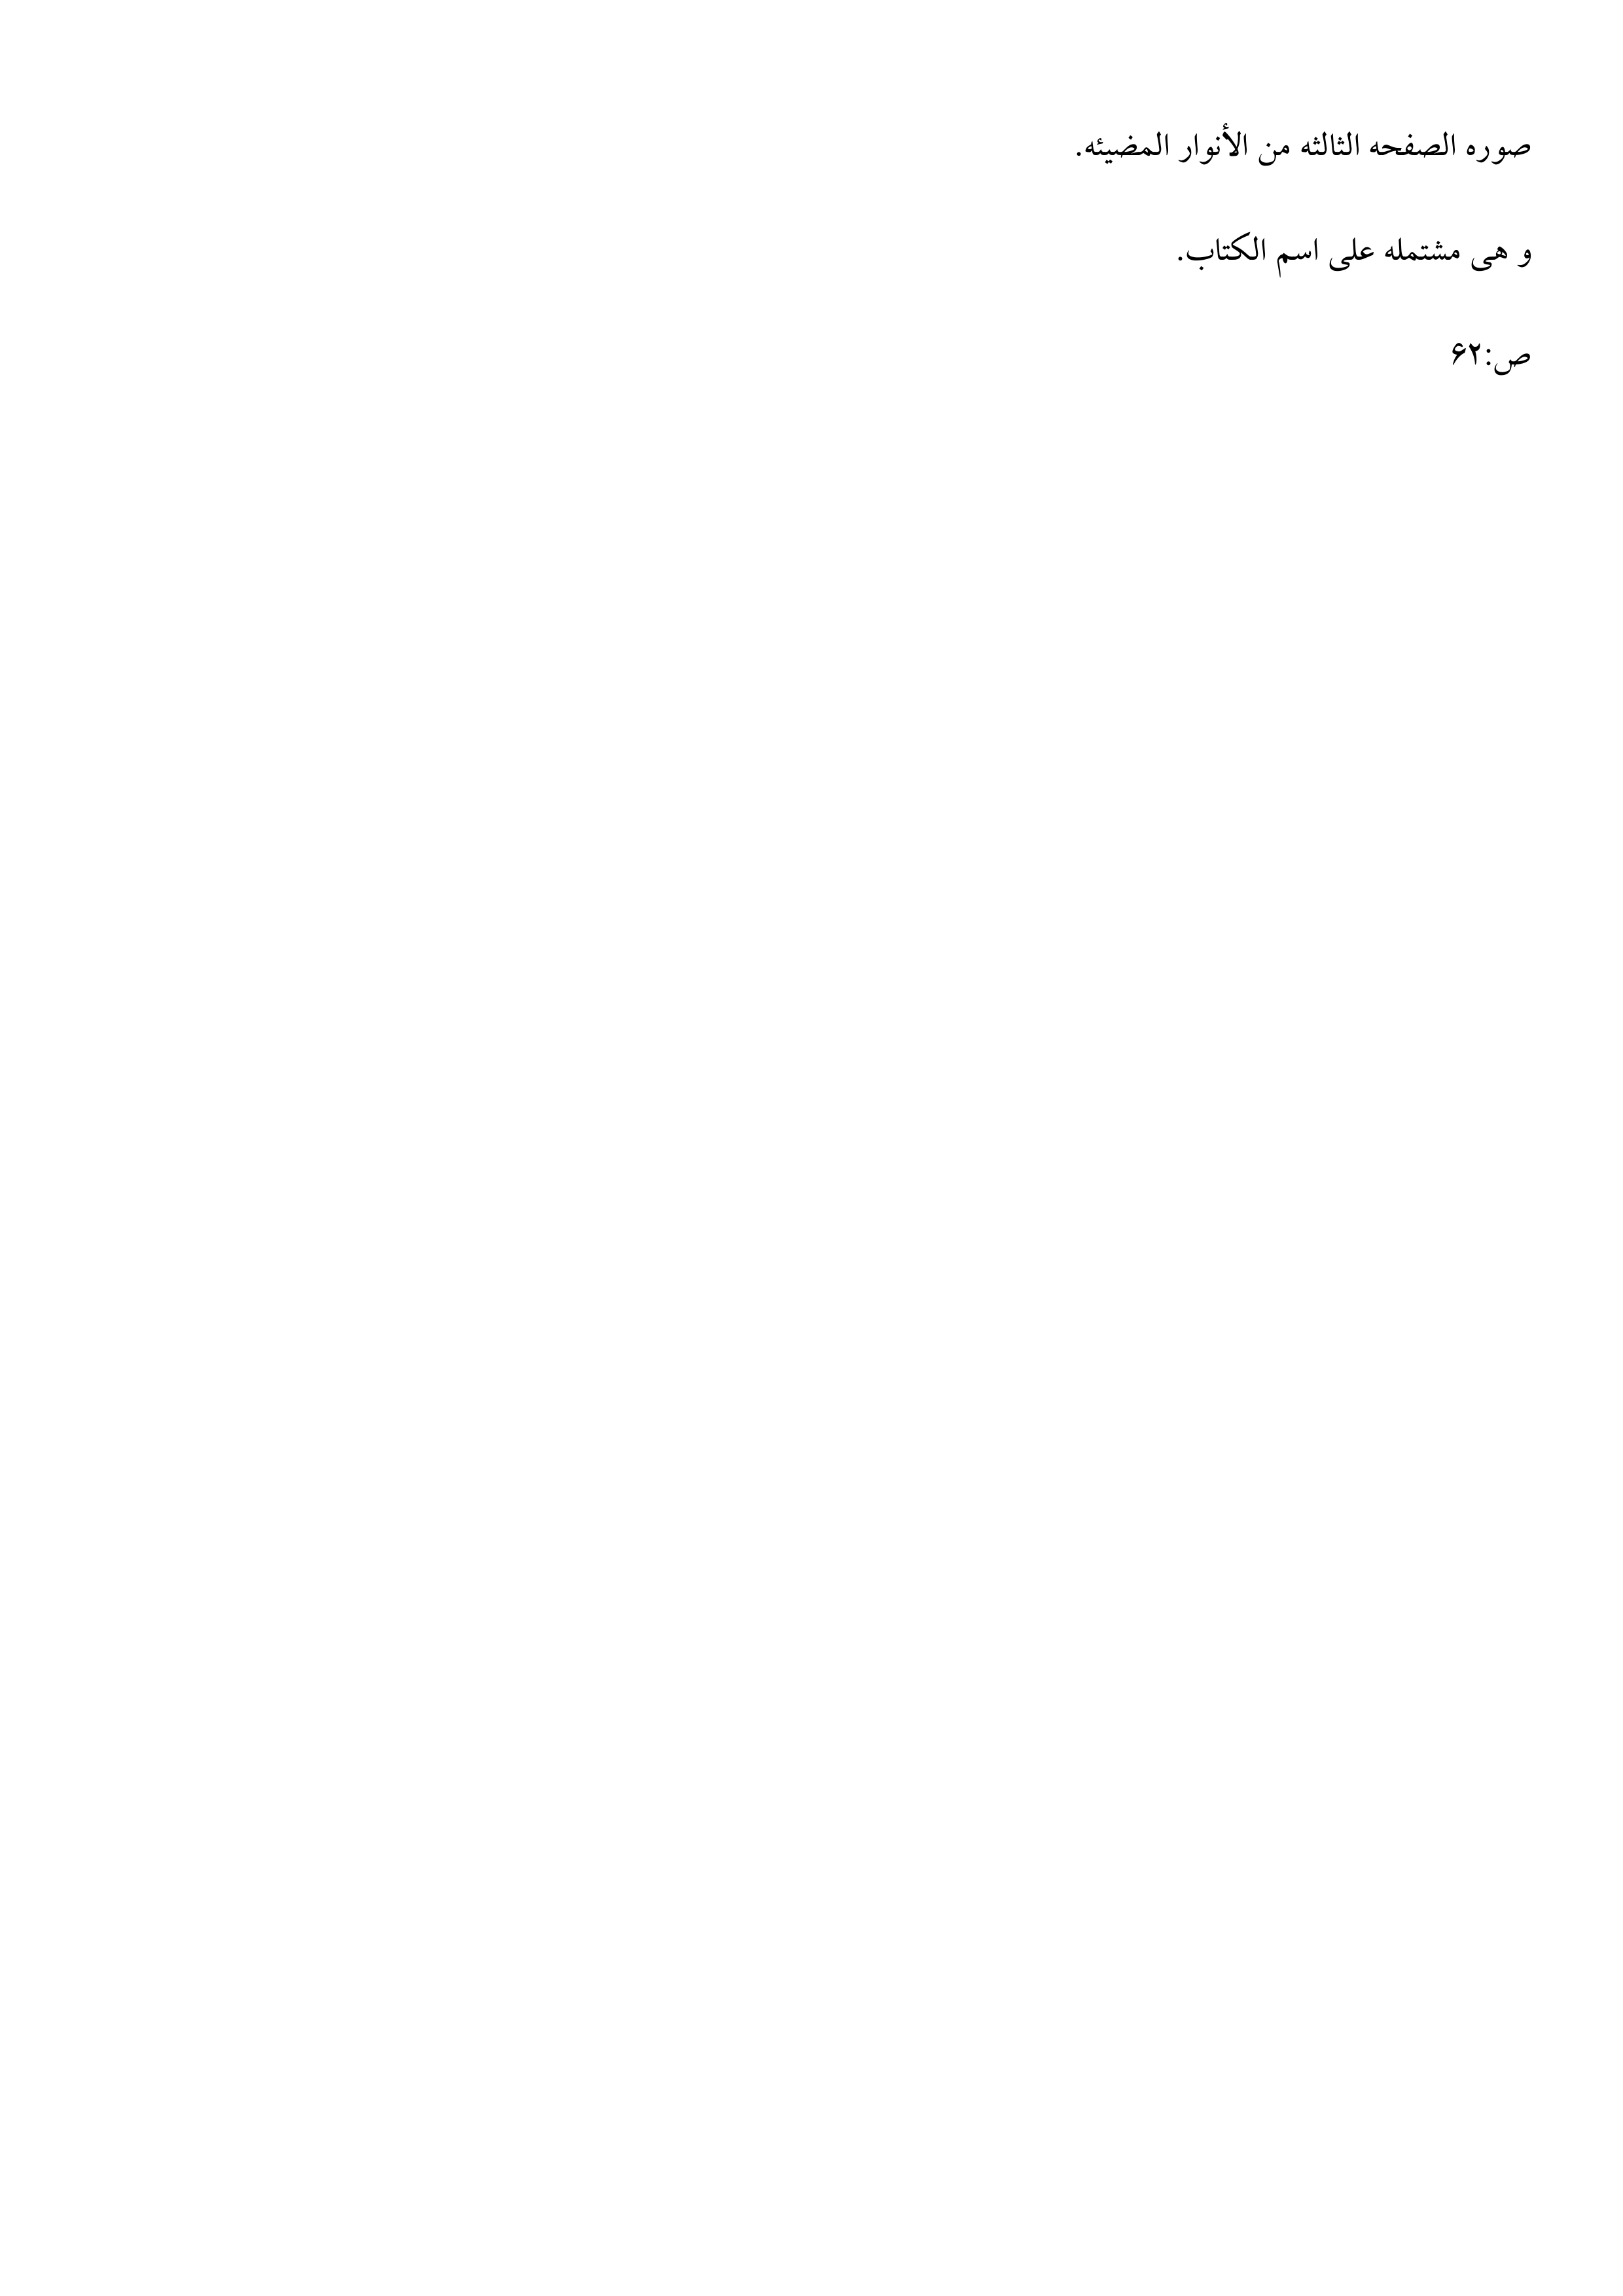 صوره الصفحه الثالثه من الأنوار المضیئه.
و هی مشتمله علی اسم الکتاب.
ص:۶۲